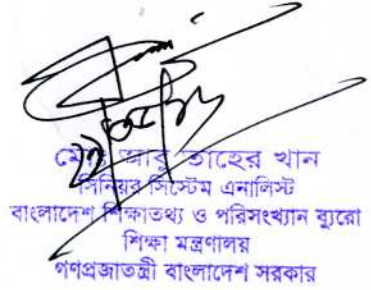 মোঃ আবু তাহের খান
সিনিয়র সিস্টেম এনালিস্ট
বাংলাদেশ শিক্ষাতথ্য ও পরিসংখ্যান ব্যুরো
শিক্ষা মন্ত্রণালয়
গণপ্রজাতন্ত্রী বাংলাদেশ সরকার